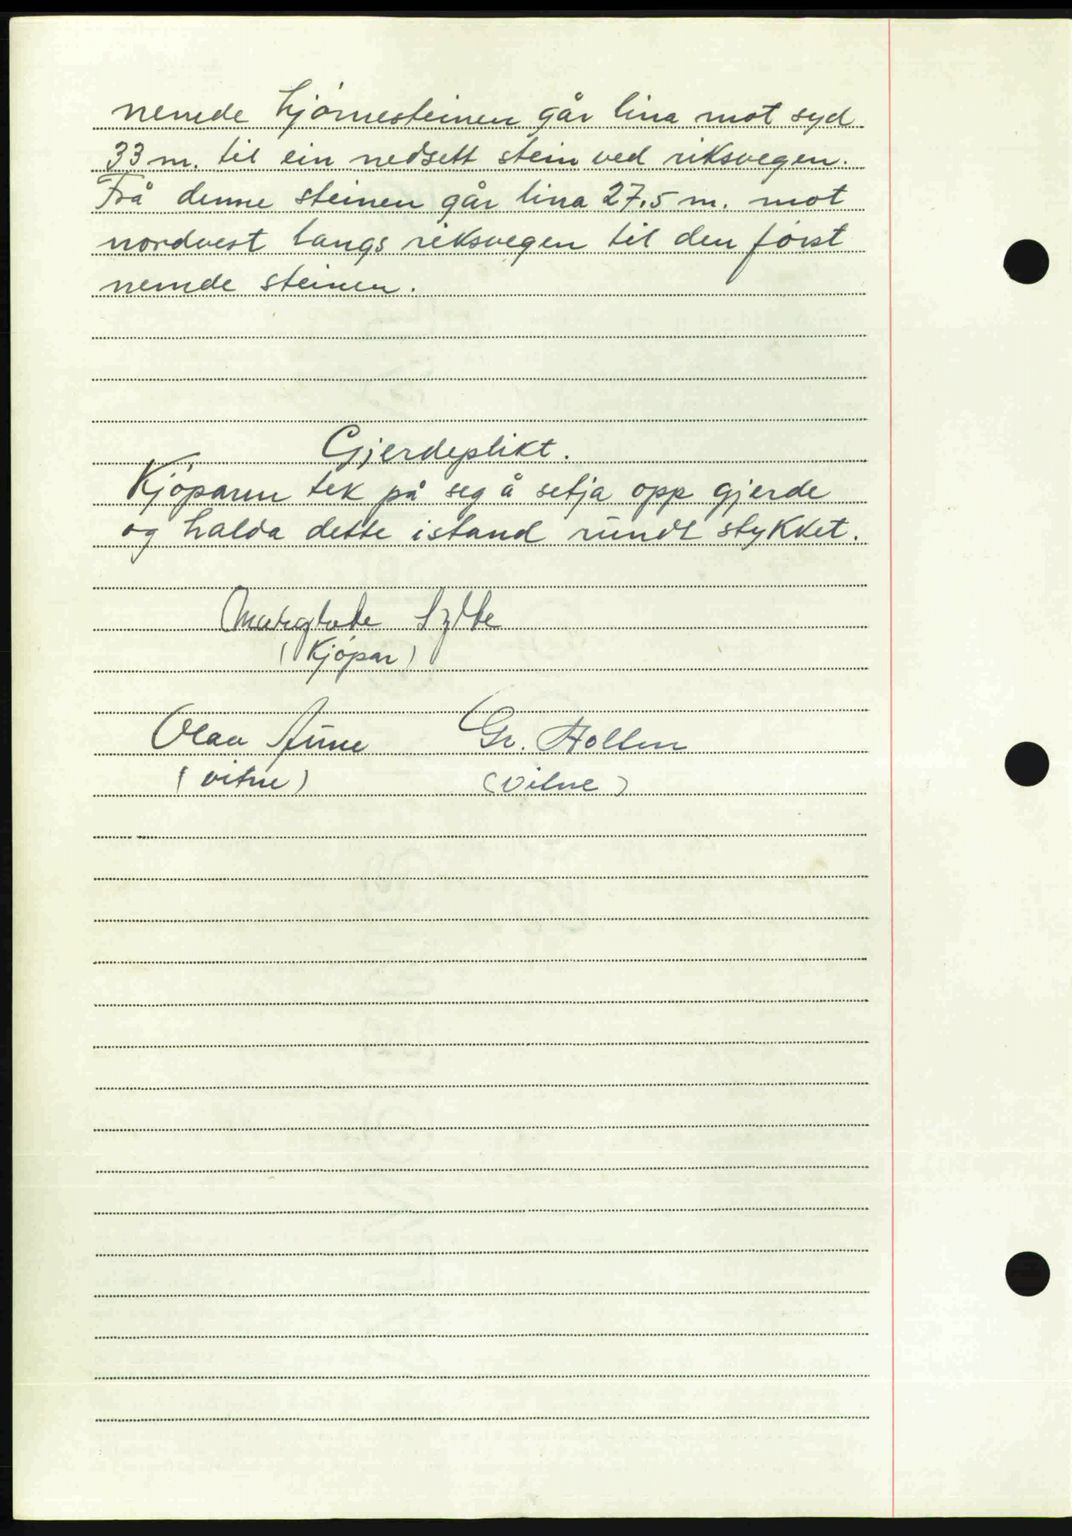 nemde hjørnesteinen går lina mot syd
33 m. til ein nedsett stein ved riksvegen.
Frå denne steinen går lina 27,5 m. mot
nordvest langs riksvegen til den først
nemde steinen.
Gjerdeplikt.
Kjøparen tek på seg å setja opp gjerde
og halda dette istand rundt stykket.
Sylte
(Kjøpar)
Olav Aune Gr. Hollen
(vitne) (vitne)